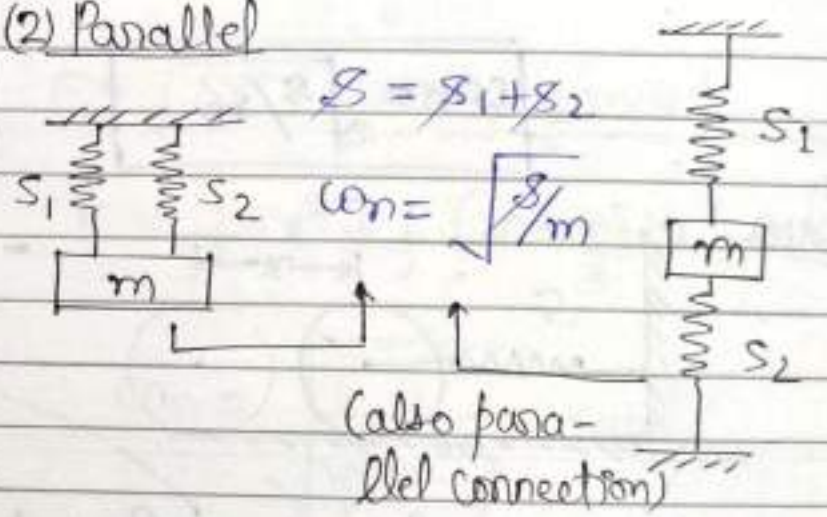 (2) Parallel
S = S1+S2
S1
S1
S2
ωn= √S/m
m
m
S2
(also para-
llel connection)